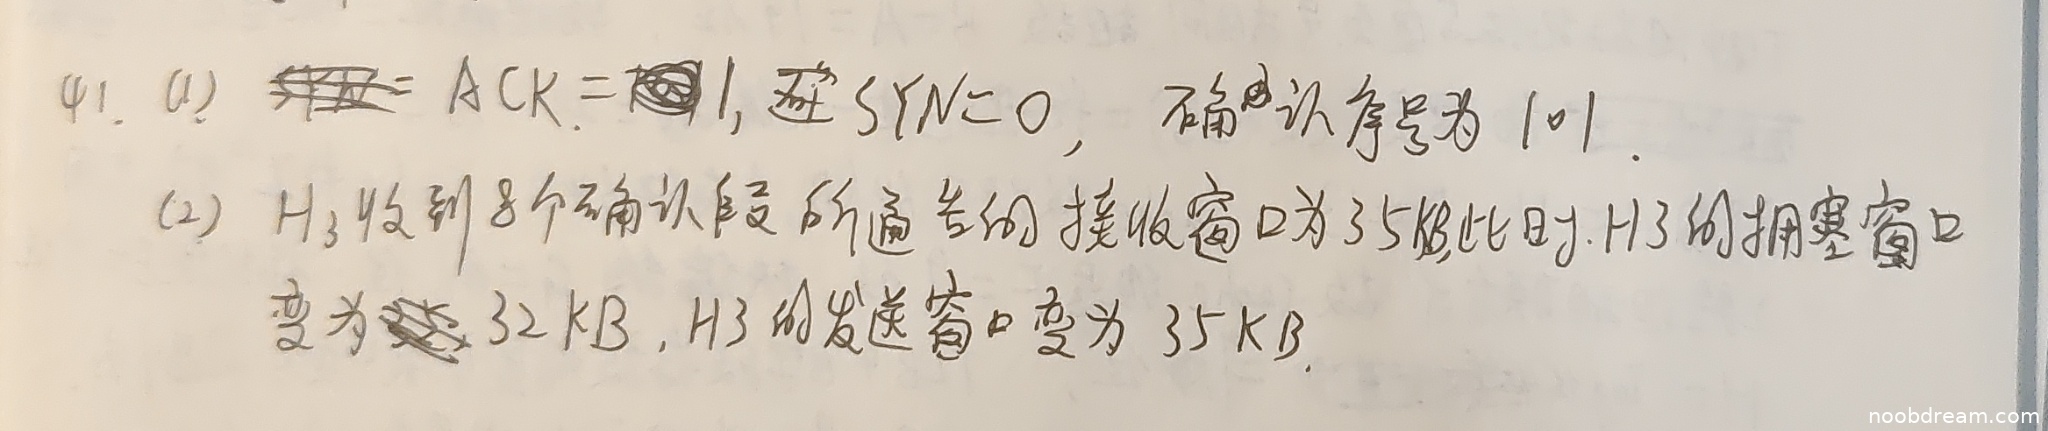 41. (1) = ACK = 1, SYN=0, 确认序号为 101.
(2) H3收到8个确认段所通告的接收窗口为35KB,此时.H3的拥塞窗口
变为 32KB, H3的发送窗口变为 35KB.
noobdream.com